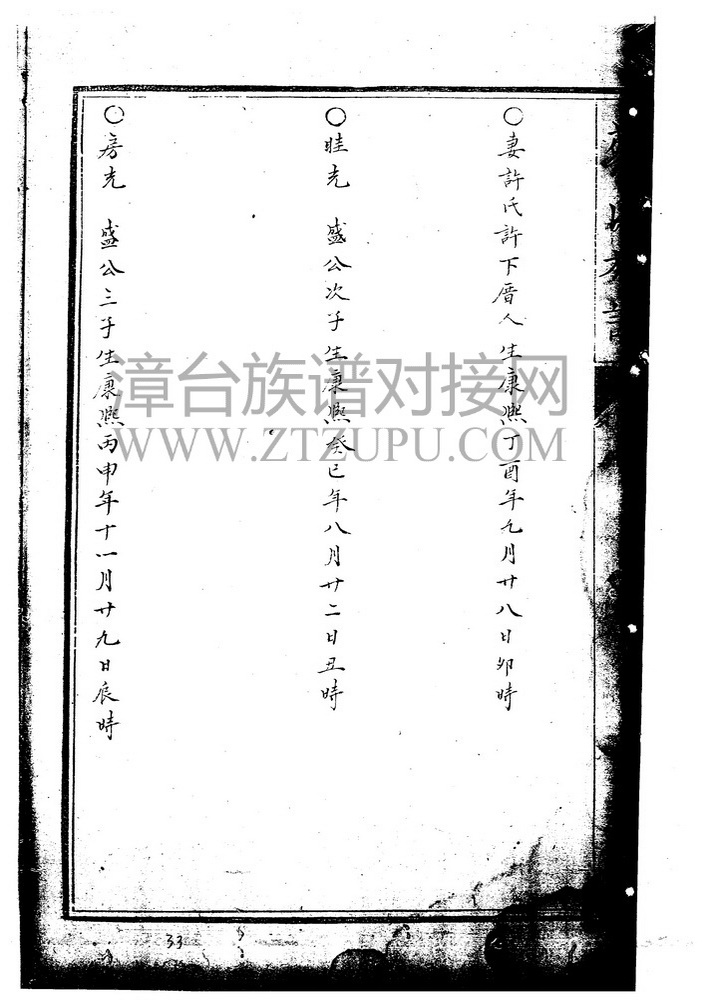 ○妻許氏許下厝人生康熙丁酉年九月廿八日卯時
○眭光　盛公次子生康熙癸巳年八月廿二日丑時
○房光　盛公三子生康熙丙申年十一月廿九日辰時
漳台族谱对接网
WWW.ZTZUPU.COM
33